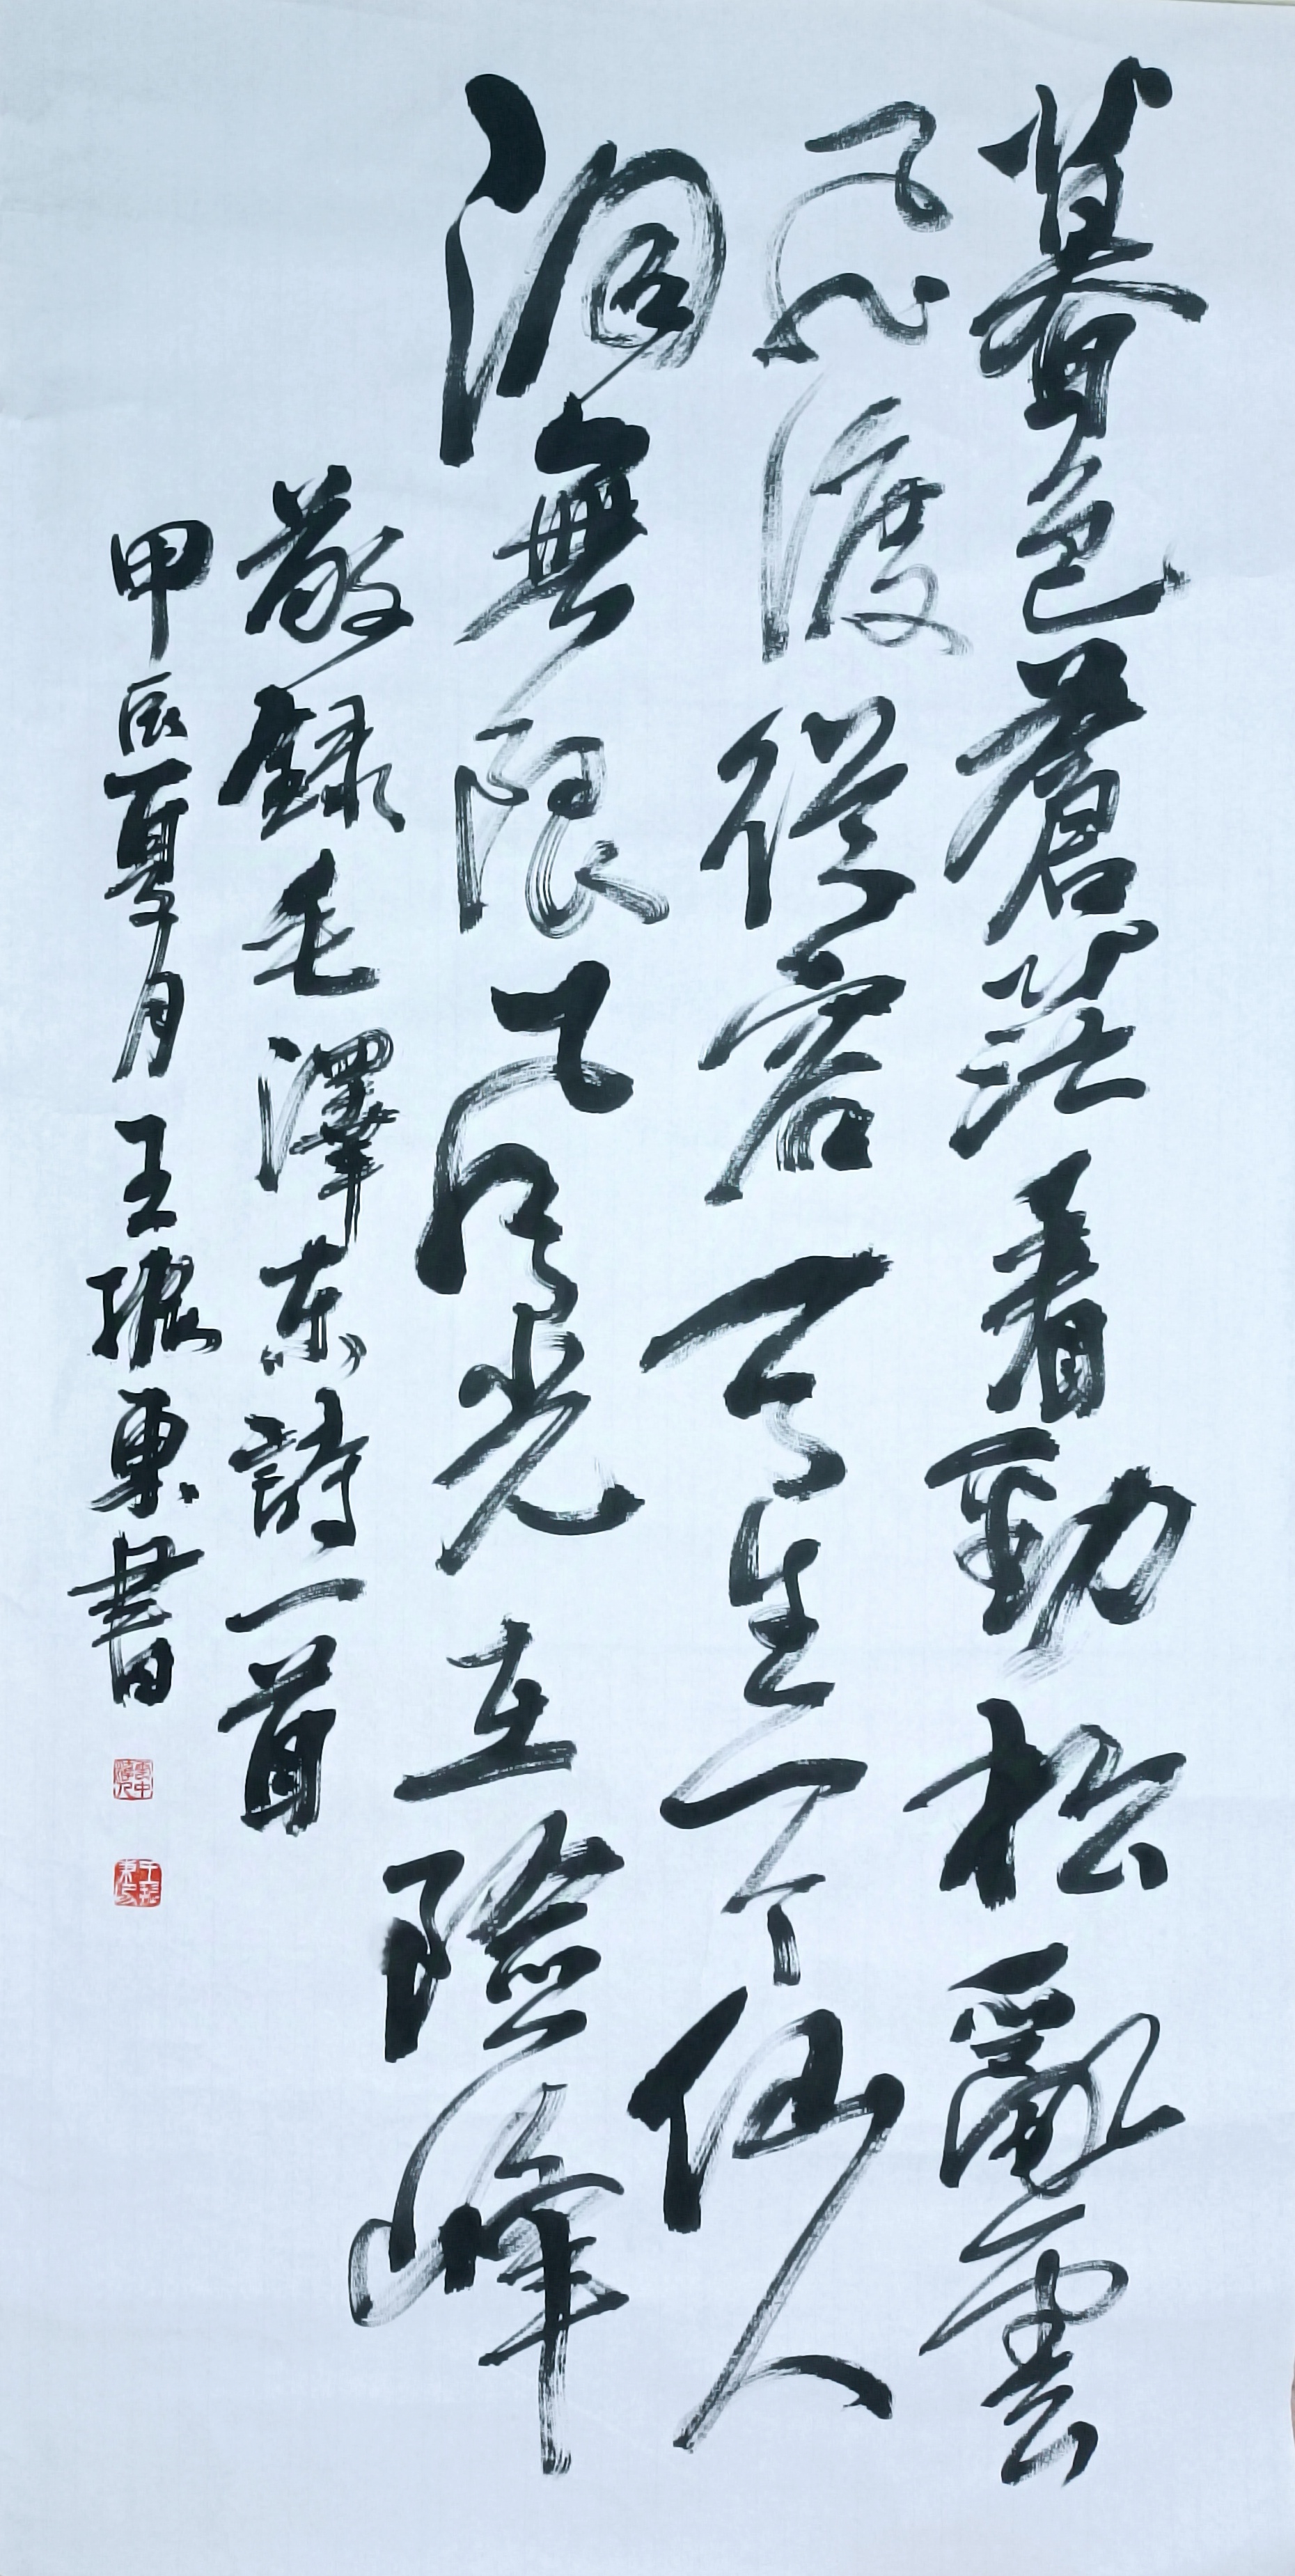 暮色蒼茫看勁松亂雲
飛渡從容天生一个仙人
洞無限風光在險峰
敬録毛澤东詩一首
甲辰夏月王振東書